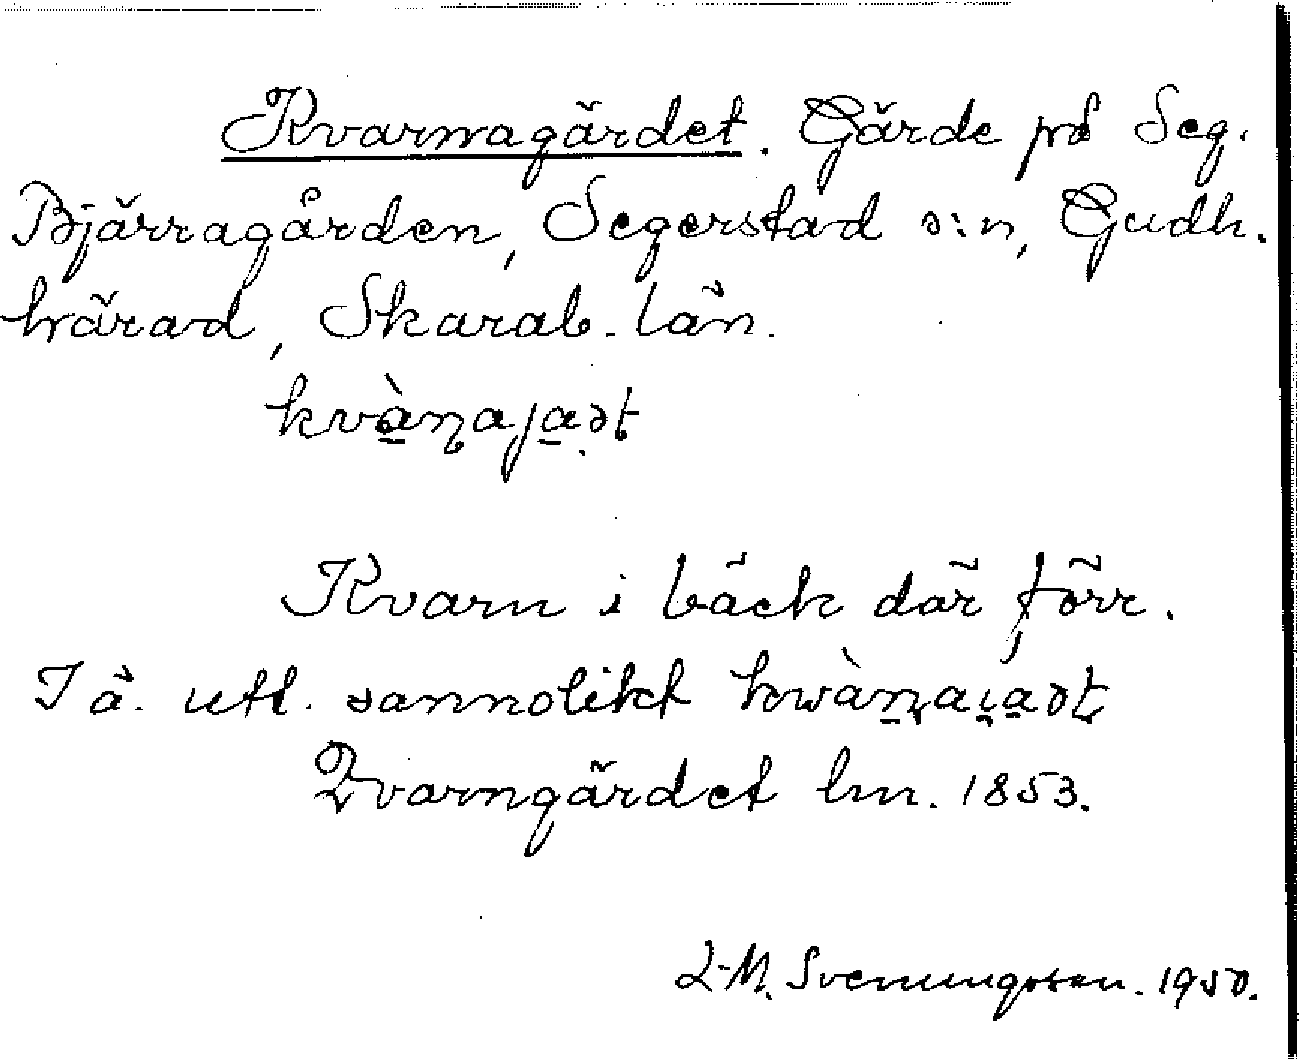 Kvarnagärdet. Gärde på Seg.
Bjärragården, Segerstad s:n, Gudh.
härad, Skarab. län.
kvàɳajaət
Kvarn i bäck där förr.
I ä. utt. sannolikt
Qvarngärdet hm. 1853.
L-M. Svenungsson. 1950.